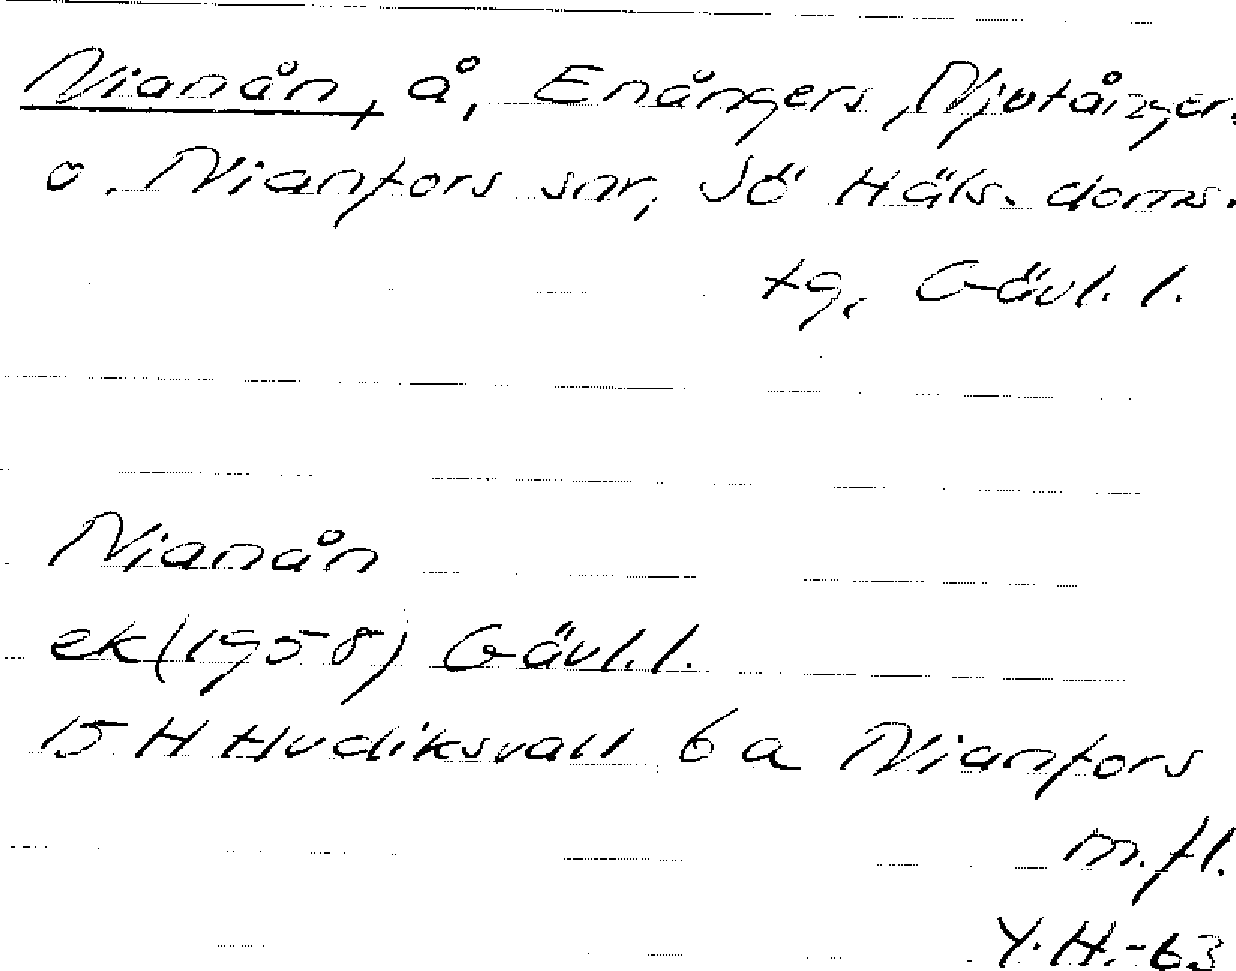 Nianån, å, Enångers, Njutånger.
o. Nianfors snr, Sö Häls. doms.
tg, Gävl. l.
Nianån
ek (1958) Gävl. l.
15 H Hudiksvall 6 a Nianfors
m. fl.
Y. H. -63